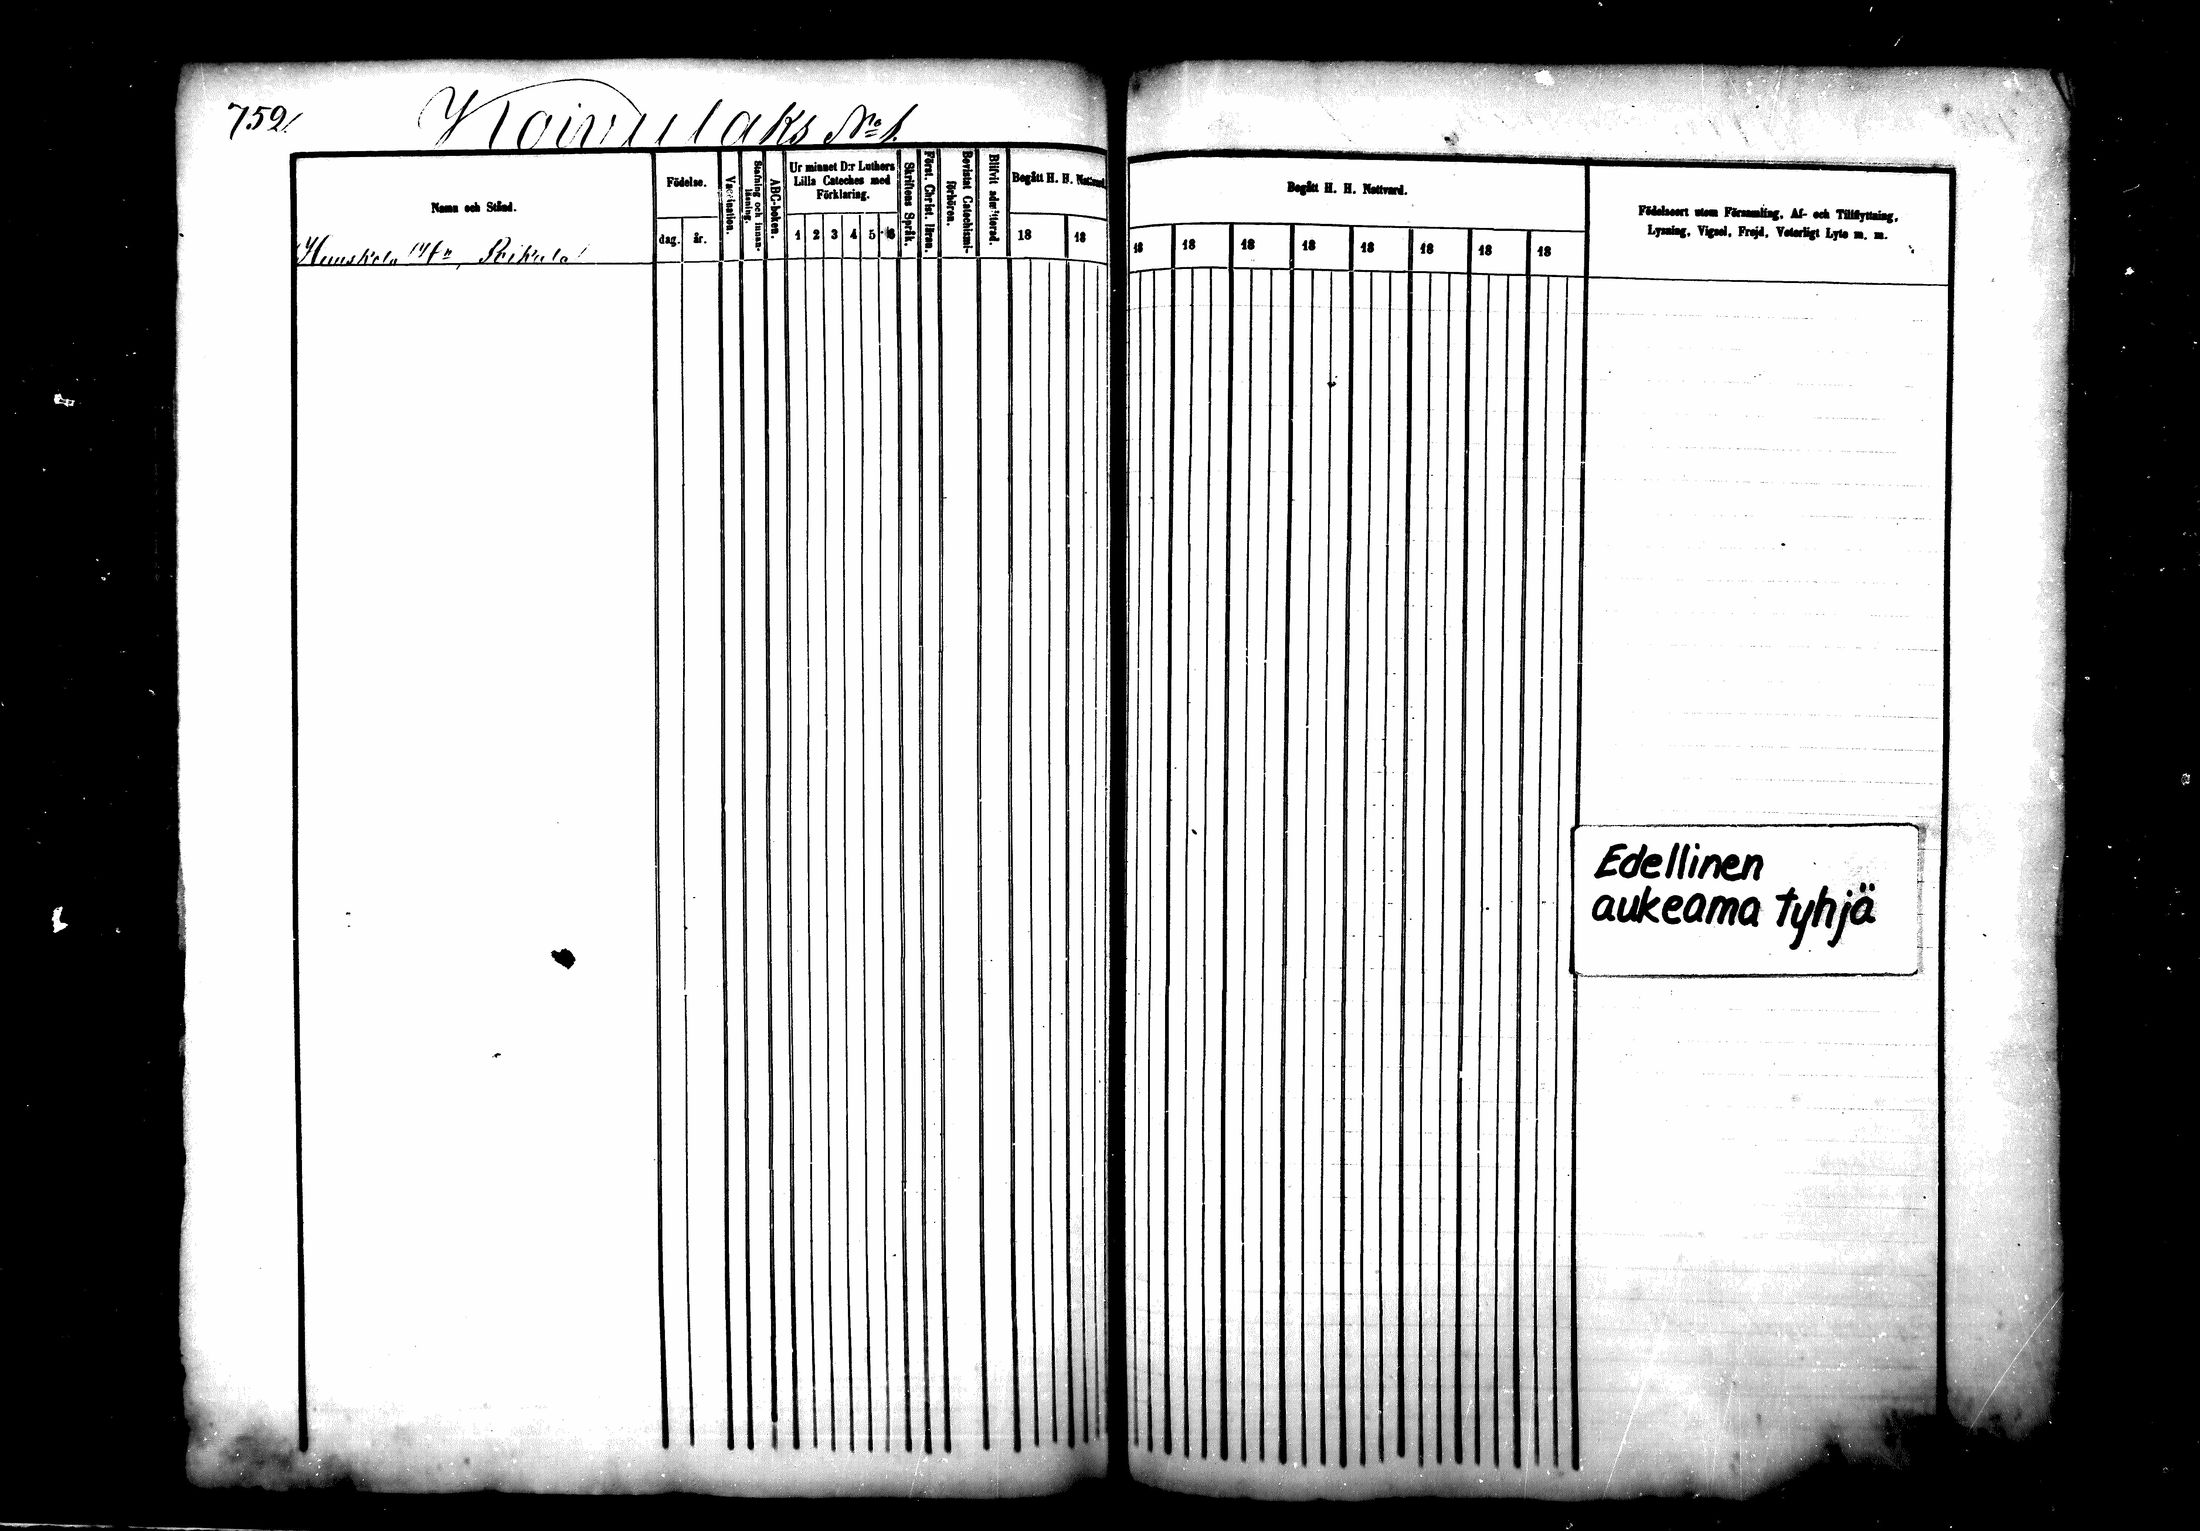 752.
Koivulaks No 1.
Namn och Stånd.
Födelse.
dag.
år.
Vaccination.
Stafning och innanläsning.
ABC-boken.
Ur minnet D:r Luthers
Lilla Cateches med
Förklaring.
1 2 3 4 5 6
Skriftens Språk.
Först. Christ. läran.
Bevistat Catechismi-
förhören.
Blifvit admitterad.
Begått H. H. Nattvard.
18 18
Begått H. H. Nattvard.
18 18 18 18 18 18 18 18
Födelseort utom Församling, Af- och Tillflyttning,
Lysning, Vigsel, Frejd, Veterligt Lyte m. m.
Edellinen
aukeama tyhjä